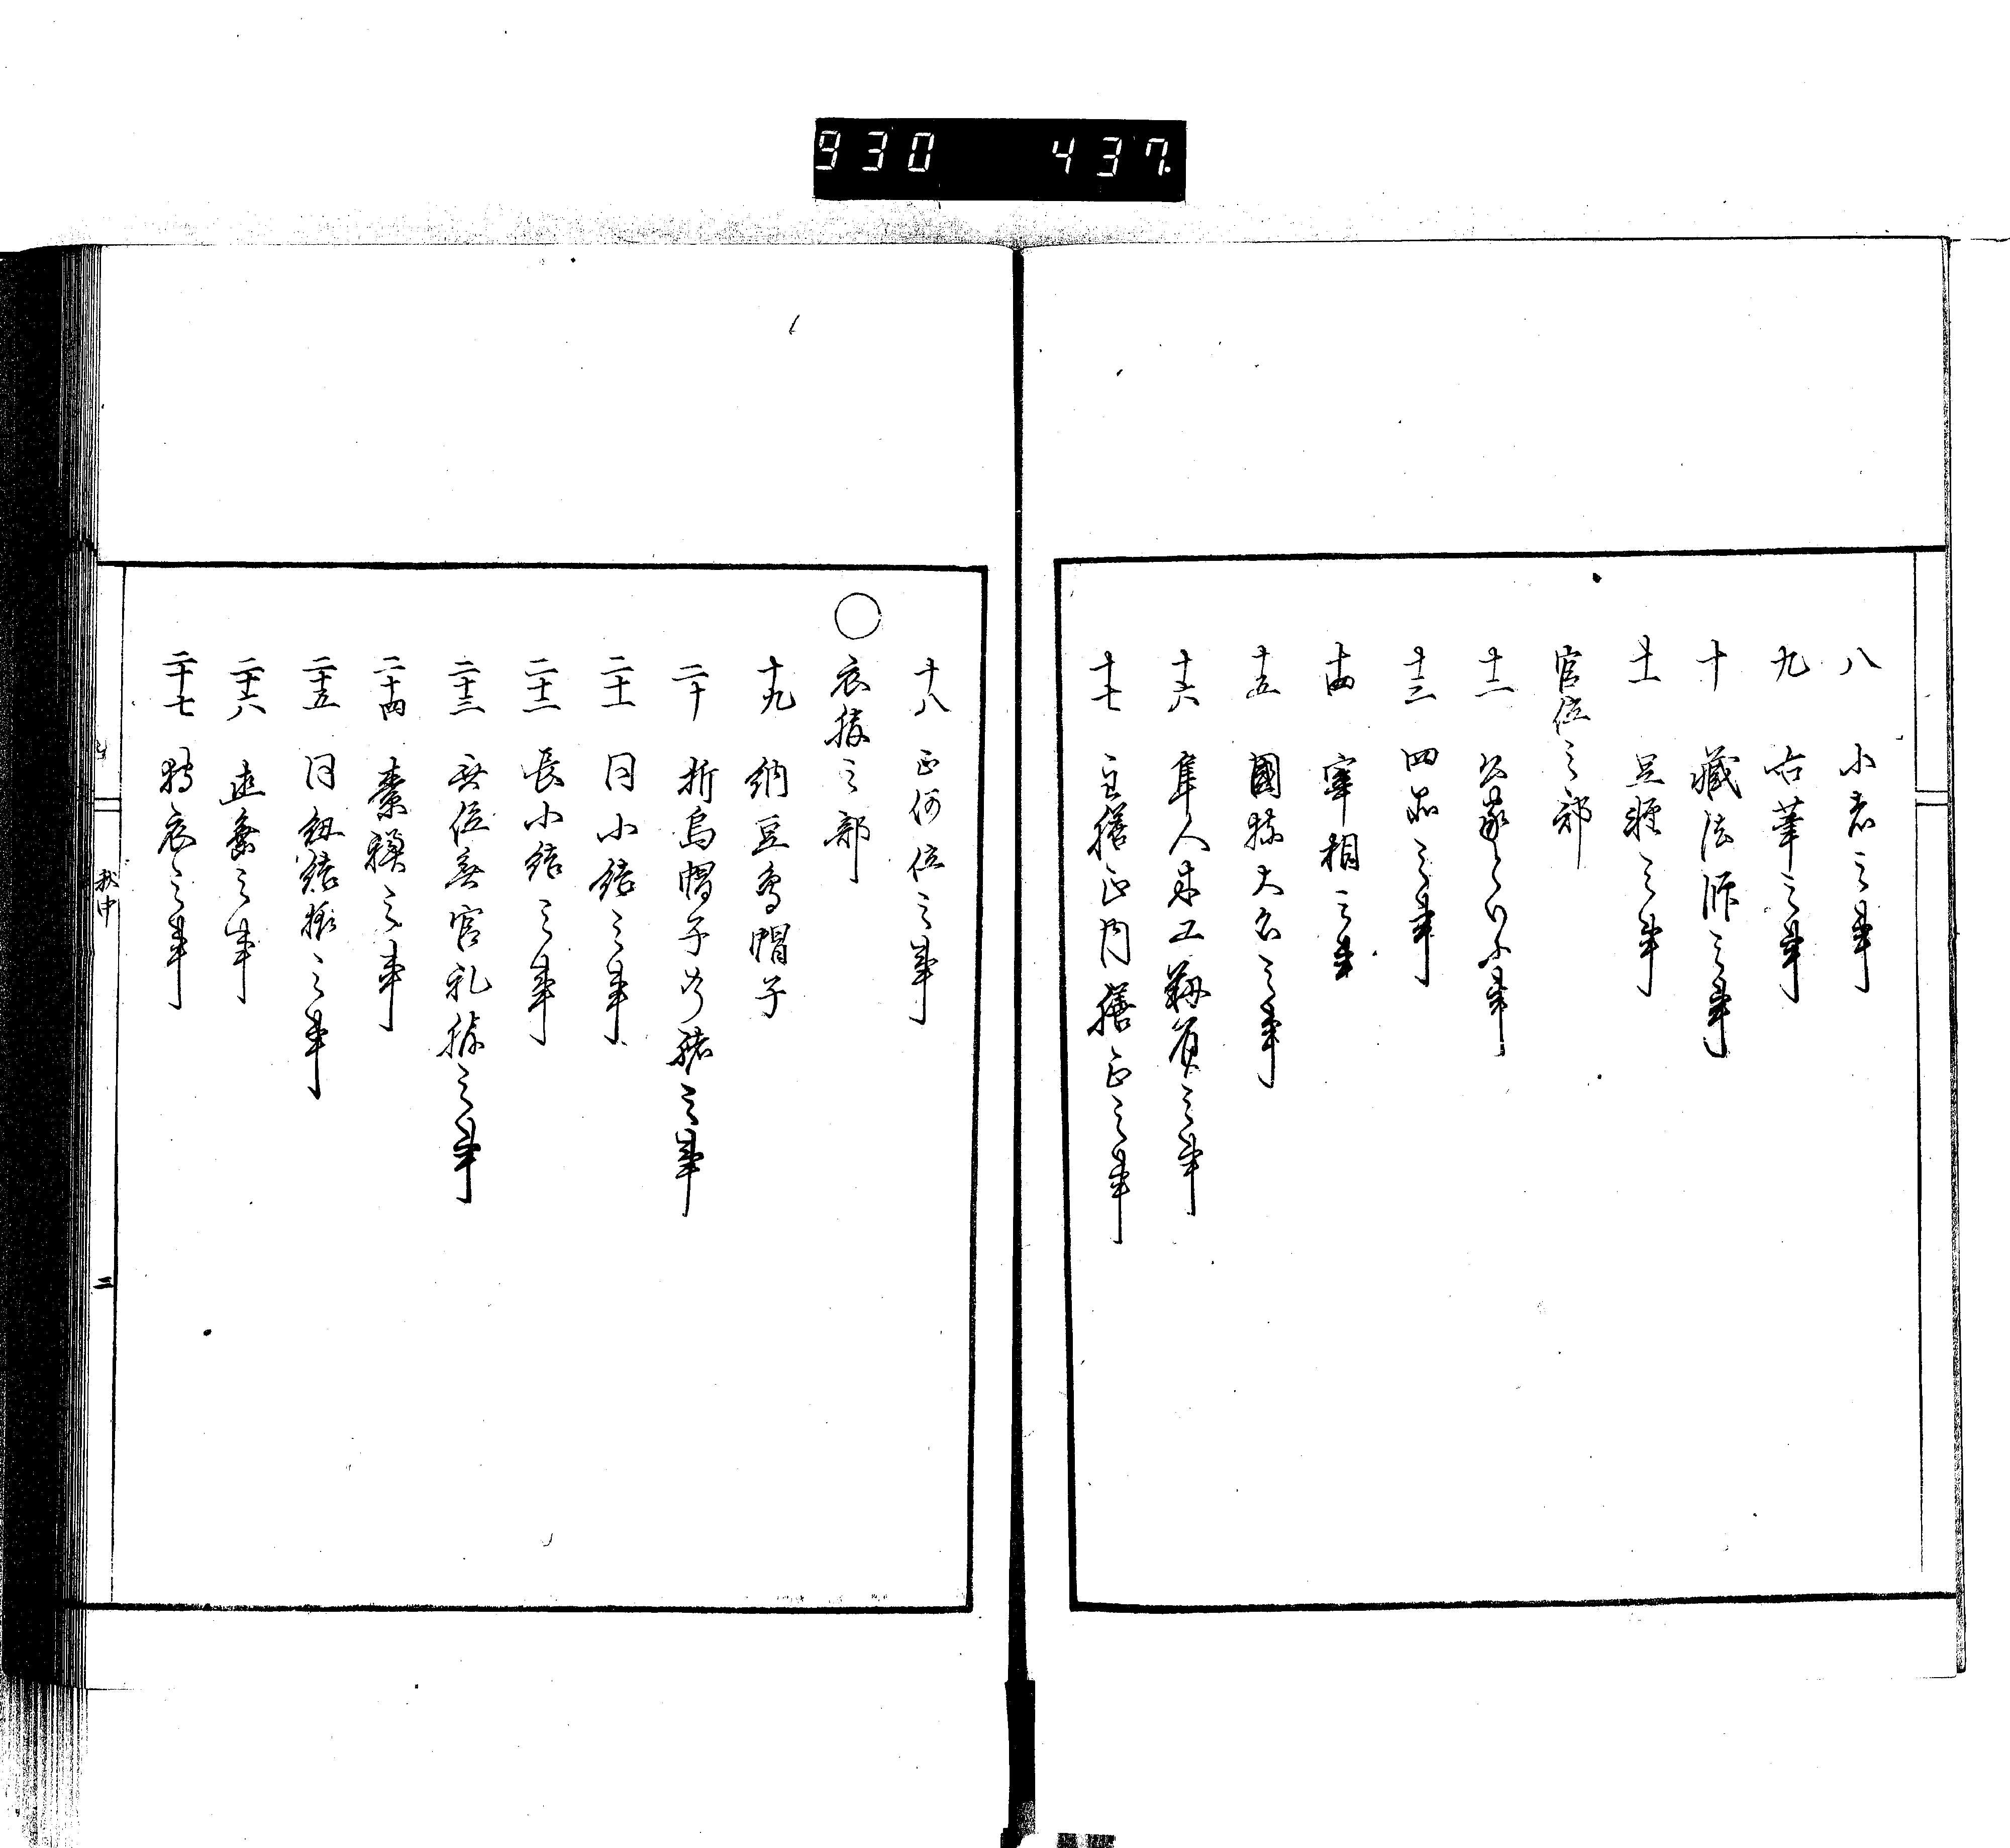 930 437
八 小者之事
九 右筆之事
十 蔵法師之事
十一 足軽之事
官位之部
十二 公家
十三 四品之事
十四 宰相之事
十五 國持大名之事
十六 隼人 靱負之事
十七 主膳正内膳正之事
十八 正何位之事
○衣服之部
十九 納豆烏帽子
二十 折烏帽子 之事
二十一 同小結之事
二十二 長小結之事
二十三 無位無官礼服之事
二十四 素襖之事
二十五 同紐結様之事
二十六 直垂之事
二十七 狩衣之事
三